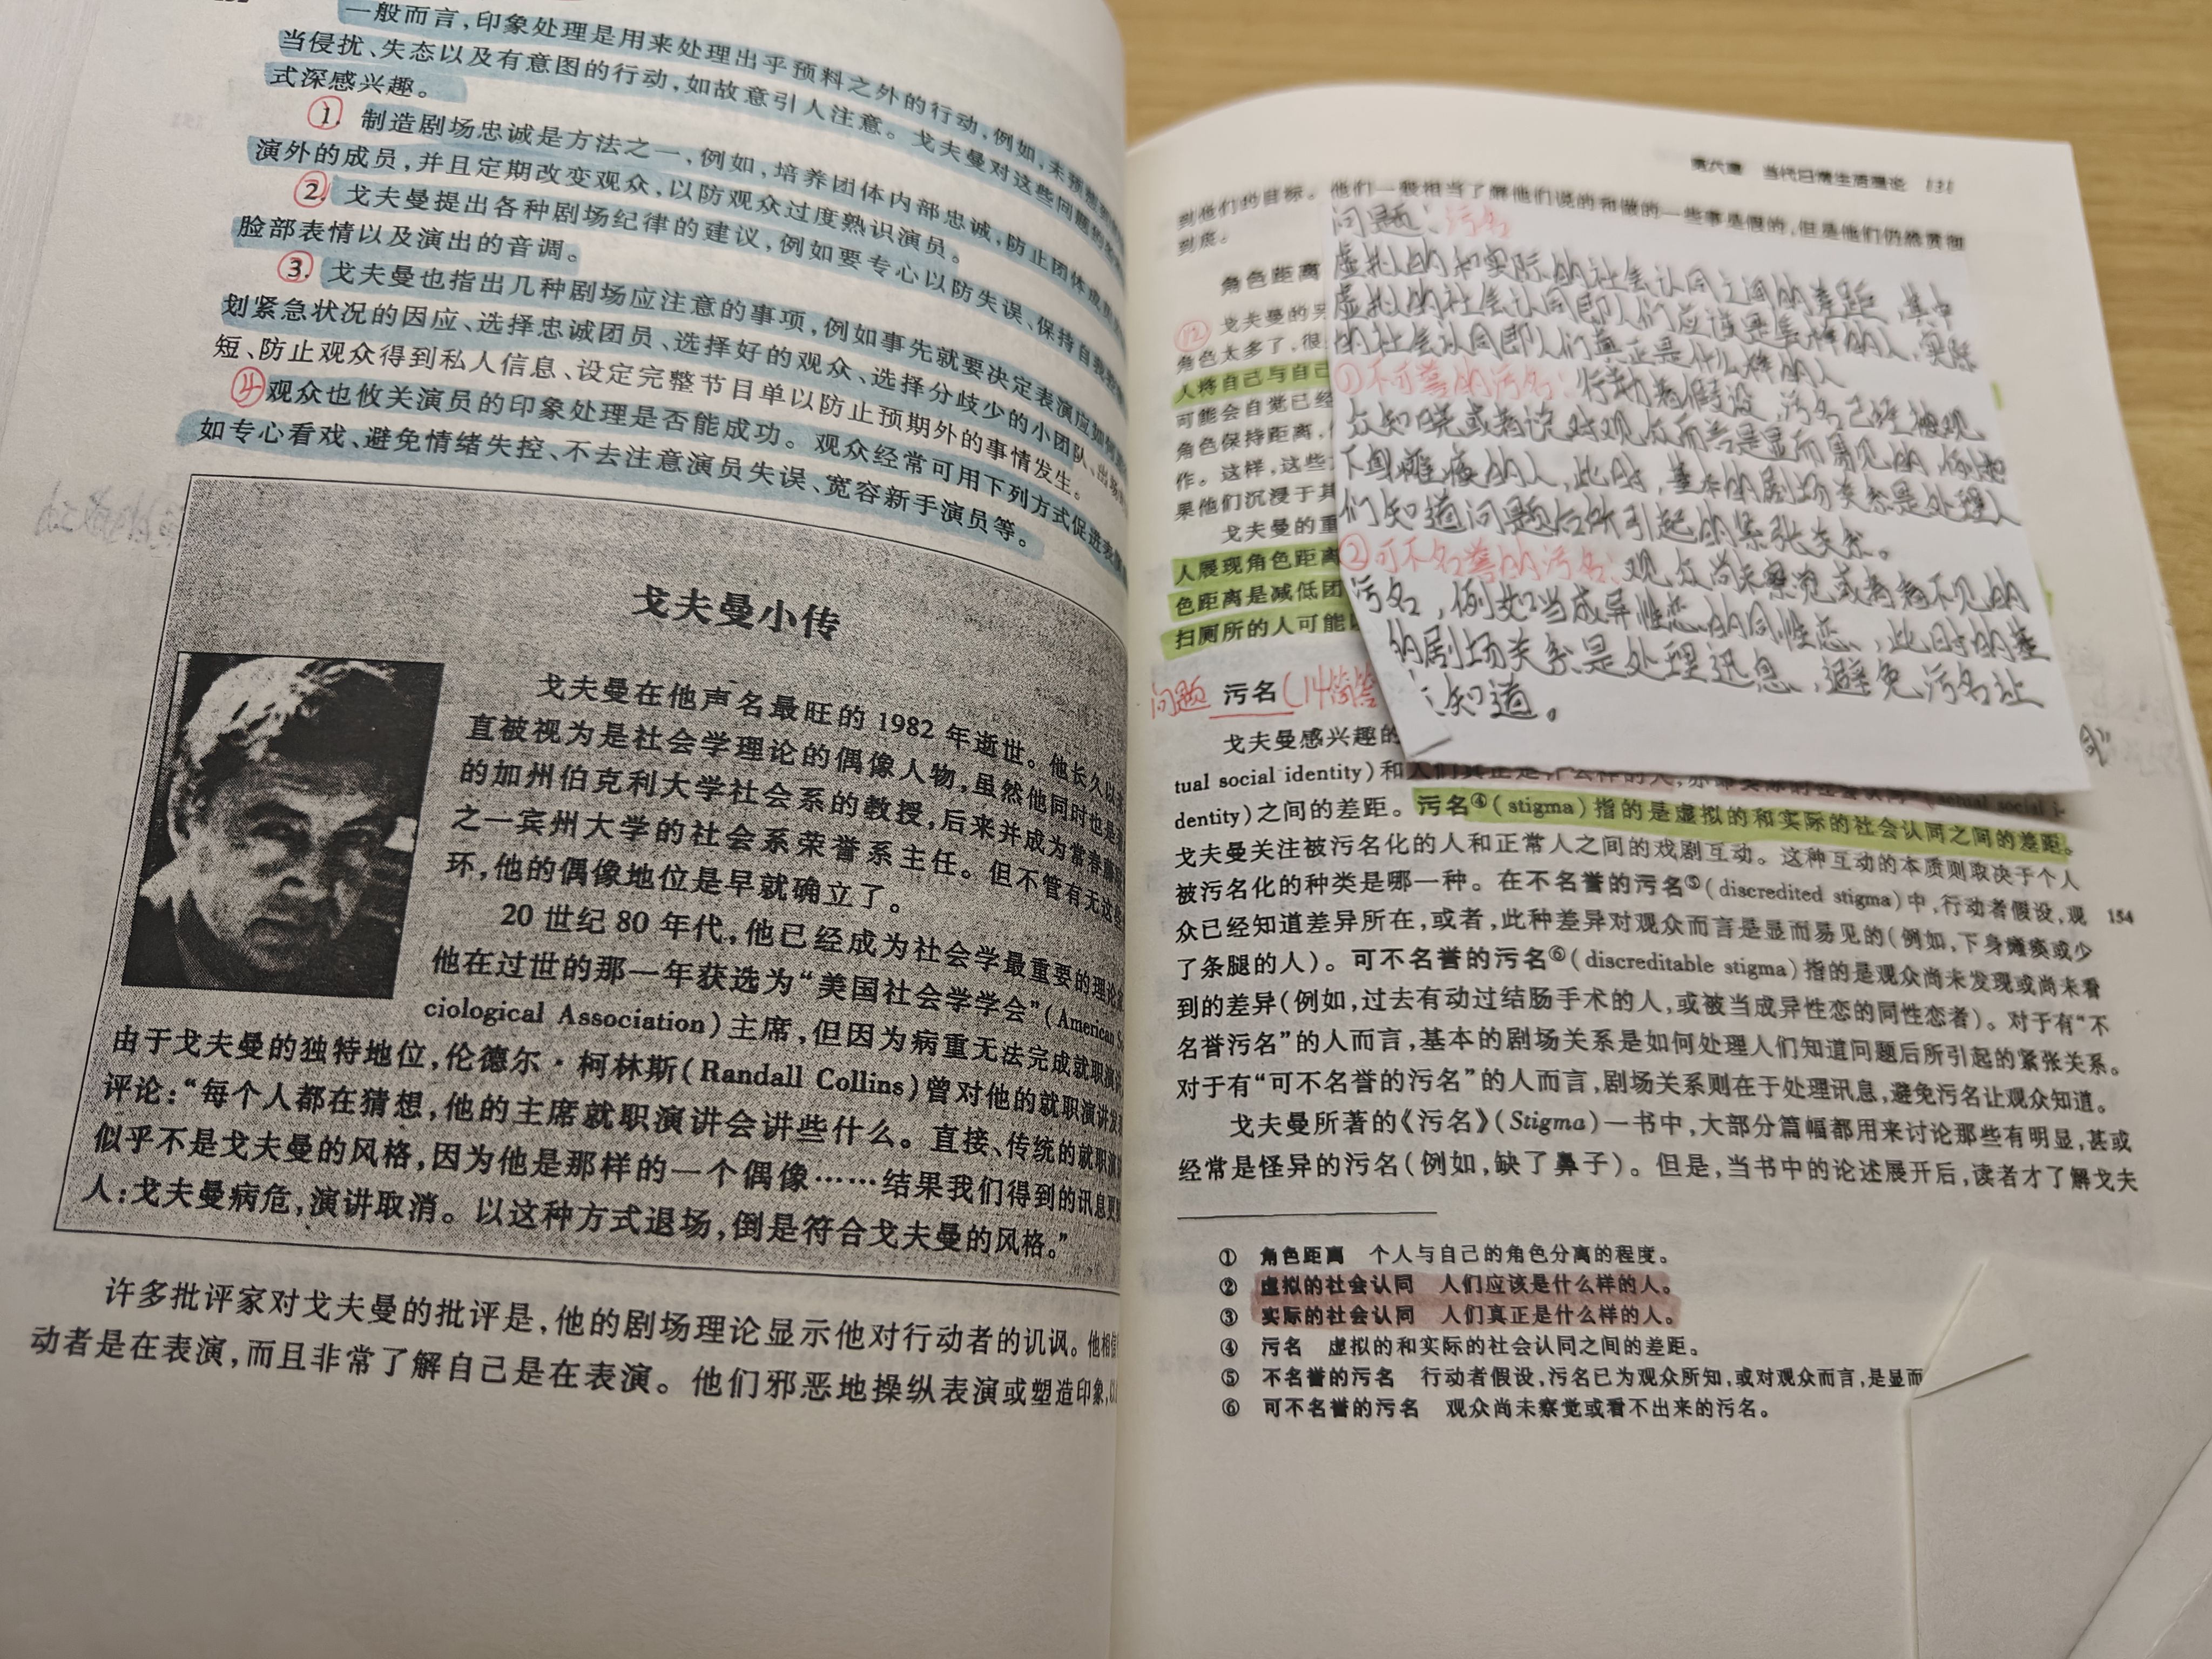 一般而言,印象处理是用来处理出乎预料之外的行动,例如,未预想
当侵扰、失态以及有意图的行动,如故意引人注意。戈夫曼对这些问题的
式深感兴趣。
1. 制造剧场忠诚是方法之一,例如,培养团体内部忠诚,防止团体成员
演外的成员,并且定期改变观众,以防观众过度熟识演员。
2. 戈夫曼提出各种剧场纪律的建议,例如要专心以防失误、保持自我
脸部表情以及演出的音调。
3. 戈夫曼也指出几种剧场应注意的事项,例如事先就要决定表演应如何
划紧急状况的因应、选择忠诚团员、选择好的观众、选择分歧少的小团队、出场
短、防止观众得到私人信息、设定完整节目单以防止预期外的事情发生。
④观众也攸关演员的印象处理是否能成功。观众经常可用下列方式促进
如专心看戏、避免情绪失控、不去注意演员失误、宽容新手演员等。
戈夫曼小传
戈夫曼在他声名最旺的 1982 年逝世。他长久以
直被视为是社会学理论的偶像人物,虽然他同时也是
的加州伯克利大学社会系的教授,后来并成为常春藤
之一宾州大学的社会系荣誉系主任。但不管有无这
环,他的偶像地位是早就确立了。
20 世纪 80 年代,他已经成为社会学最重要的理论
他在过世的那一年获选为“美国社会学学会”(American S
ciological Association)主席,但因为病重无法完成就职演
由于戈夫曼的独特地位,伦德尔·柯林斯(Randall Collins)曾对他的就职演讲发
评论:“每个人都在猜想,他的主席就职演讲会讲些什么。直接、传统的就职演
似乎不是戈夫曼的风格,因为他是那样的一个偶像……结果我们得到的讯息更
人:戈夫曼病危,演讲取消。以这种方式退场,倒是符合戈夫曼的风格。”
许多批评家对戈夫曼的批评是,他的剧场理论显示他对行动者的讥讽。他相信
动者是在表演,而且非常了解自己是在表演。他们邪恶地操纵表演或塑造印象,以
第六章 当代日常生活理论 131
到他们的目标。他们一般相当了解他们说的和做的一些事是假的,但是他们仍然贯彻
到底。
角色距离
⑫ 戈夫曼的另
角色太多了,很
人将自己与自己
可能会自觉已经
角色保持距离,
作。这样,这些
果他们沉浸于其
戈夫曼的重
人展现角色距离
色距离是减低团
扫厕所的人可能
问题:污名
虚拟的和实际的社会认同之间的差距,其中
虚拟的社会认同即人们应该是怎样的人,实际
的社会认同即人们真正是什么样的人
①不可誉的污名:行动者假设,污名已经被观
众知晓或者说对观众而言是显而易见的,例如
下身瘫痪的人,此时,基本的剧场关系是处理人
们知道问题后所引起的紧张关系。
②可不名誉的污名:观众尚未察觉或者看不见的
污名,例如当成异性恋的同性恋,此时的基
的剧场关系是处理迅息,避免污名让
知道。
问题 污名(14简答
戈夫曼感兴趣的
tual social identity)和人们真正是什么样的人,亦即实际的社会认同(actual social i-
dentity)之间的差距。污名④(stigma)指的是虚拟的和实际的社会认同之间的差距。
戈夫曼关注被污名化的人和正常人之间的戏剧互动。这种互动的本质则取决于个人
被污名化的种类是哪一种。在不名誉的污名⑤(discredited stigma)中,行动者假设,观 154
众已经知道差异所在,或者,此种差异对观众而言是显而易见的(例如,下身瘫痪或少
了条腿的人)。可不名誉的污名⑥(discreditable stigma)指的是观众尚未发现或尚未看
到的差异(例如,过去有动过结肠手术的人,或被当成异性恋的同性恋者)。对于有“不
名誉污名”的人而言,基本的剧场关系是如何处理人们知道问题后所引起的紧张关系。
对于有“可不名誉的污名”的人而言,剧场关系则在于处理讯息,避免污名让观众知道。
戈夫曼所著的《污名》(Stigma)一书中,大部分篇幅都用来讨论那些有明显,甚或
经常是怪异的污名(例如,缺了鼻子)。但是,当书中的论述展开后,读者才了解戈夫
① 角色距离 个人与自己的角色分离的程度。
② 虚拟的社会认同 人们应该是什么样的人。
③ 实际的社会认同 人们真正是什么样的人。
④ 污名 虚拟的和实际的社会认同之间的差距。
⑤ 不名誉的污名 行动者假设,污名已为观众所知,或对观众而言,是显而
⑥ 可不名誉的污名 观众尚未察觉或看不出来的污名。